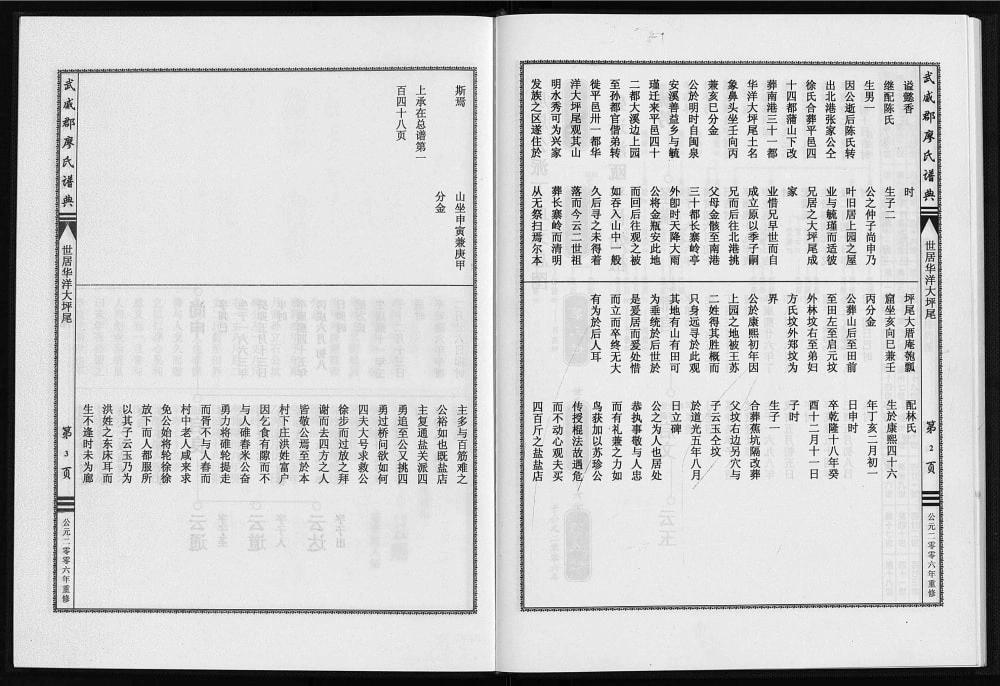 武威郡廖氏谱典
世居华洋大坪尾
第2页
公元二零零六年重修
谥懿香
继配陈氏
生男一
因公逝后陈氏转
出北港张家公仝
徐氏合葬平邑四
十四都蒲山下改
葬南港三十一都
华洋大坪尾土名
象鼻头坐壬向丙
兼亥巳分金
公於明时自闽泉
安溪善益乡与毓
瑾迁来平邑四十
二都大溪边上园
至孙都官偕弟转
徙平邑卅一都华
洋大坪尾观其山
明水秀可为兴家
发族之区遂住於
时
生子二
公之仲子尚申乃
叶旧居上园之屋
业与毓瑾而适彼
兄居之大坪尾成
家
业惜兄早世而自
成立原以季子嗣
兄而后往北港挑
父母金骸至南港
三十都长寨岭亭
外卽时天降大雨
公将金瓶安此地
而回后往观之被
如吞入山中一般
久后寻之未得着
落而今云二世祖
葬长寨岭而清明
从无祭扫焉尔本
坪尾大厝庵匏瓢
窟坐亥向巳兼壬
丙分金
公葬山后至田前
至田左至启元坟
外林坟右至弟妇
方氏坟外郑坟为
界
公於康熙初年因
上园之地被王苏
二姓得其胜概而
只身远寻於此观
其地有山有田可
为垂统於后世於
是爱居而爰处惜
而立而卒终无大
有为於后人耳
配林氏
生於康熙四十六
年丁亥二月初一
日申时
卒乾隆十八年癸
酉十二月十一日
子时
生子一
合葬蕉坑隔改葬
父坟右边另穴与
子云玉仝坟
於道光五年八月
日立碑
公之为人也居处
恭执事敬与人忠
而有礼兼之力如
鸟获加以苏珍公
传授棍法故遇危
而不动心观夫买
四百斤之盐盐店
斯焉
上承在总谱第一
百四十八页
山坐申寅兼庚甲
分金
主多与百筋难之
公裕如也既盐店
主复通盐关派四
勇追至公又挑四
勇过桥问欲如何
四夫大号求救公
徐步而过放之拜
谢而去四方之人
皆敬公焉至於本
村下庄洪姓富户
因乞食有隙而不
与人碓舂米公奋
勇力将碓轮提走
而胥不与人舂而
村中老人咸来求
免公始将轮徐徐
放下而人都服所
以其子云玉乃为
洪姓之东床耳而
生不逢时未为廊
武威郡廖氏谱典
世居华洋大坪尾
第3页
公元二零零六年重修